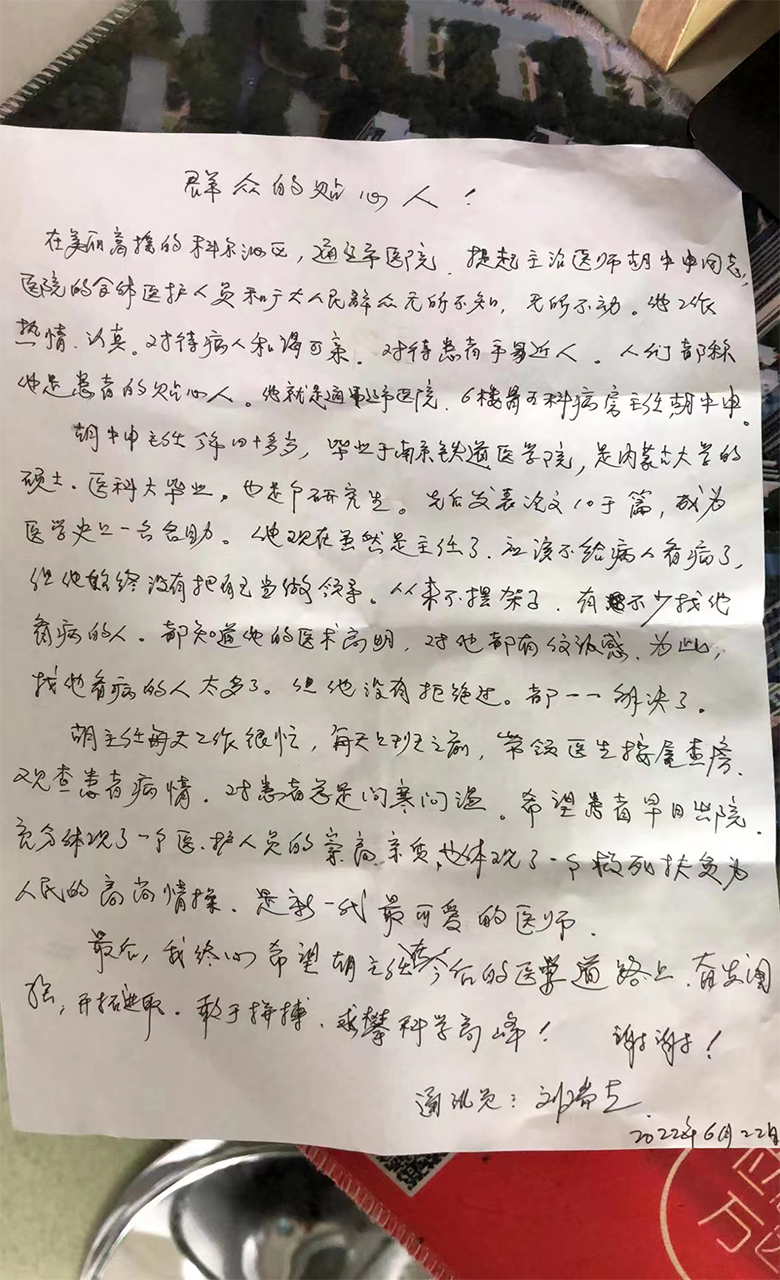 群众的贴心人！
在美丽富饶的科尔沁区，通辽市医院．提起主治医师胡牛申同志，
医院的全体医护人员和广大人民群众无所不知，无所不动。他工作
热情．认真。对待病人和谒可亲．对待患者平易近人．人们都称
他是患者的贴心人。他就是通辽市医院．6楼骨可科病房主任胡牛申。
胡牛申主任今年四十多岁，毕业于南京铁道医学院，是内蒙古大学的
硕士．医科大毕业。也是个研究生。先后发表论文10于篇，成为
医学史上一名名助。他现在虽然是主任了．应该不给病人看病了，
但他始终没有把自己当做领导。从来不摆架子．有不少找他
看病的人。都知道他的医术高明，对他都有好感．为此，
找他看病的人太多了。但他没有拒绝过。都一一解决了。
胡主任每天工作很忙，每天上班之前，带领医生按屋查房．
观查患者病情．对患者总是问寒问温。希望患者早日出院．
充分体现了一个医．护人员的崇高亲质，也体现了一个救死扶负为
人民的高尚情操．是新一代最可爱的医师．
最后，我终心希望胡主任在今后的医学道路上．奋发图
强，开拓进取．敢于拼搏．求攀科学高峰！ 谢谢！
通讯员：刘
2022年6月22日